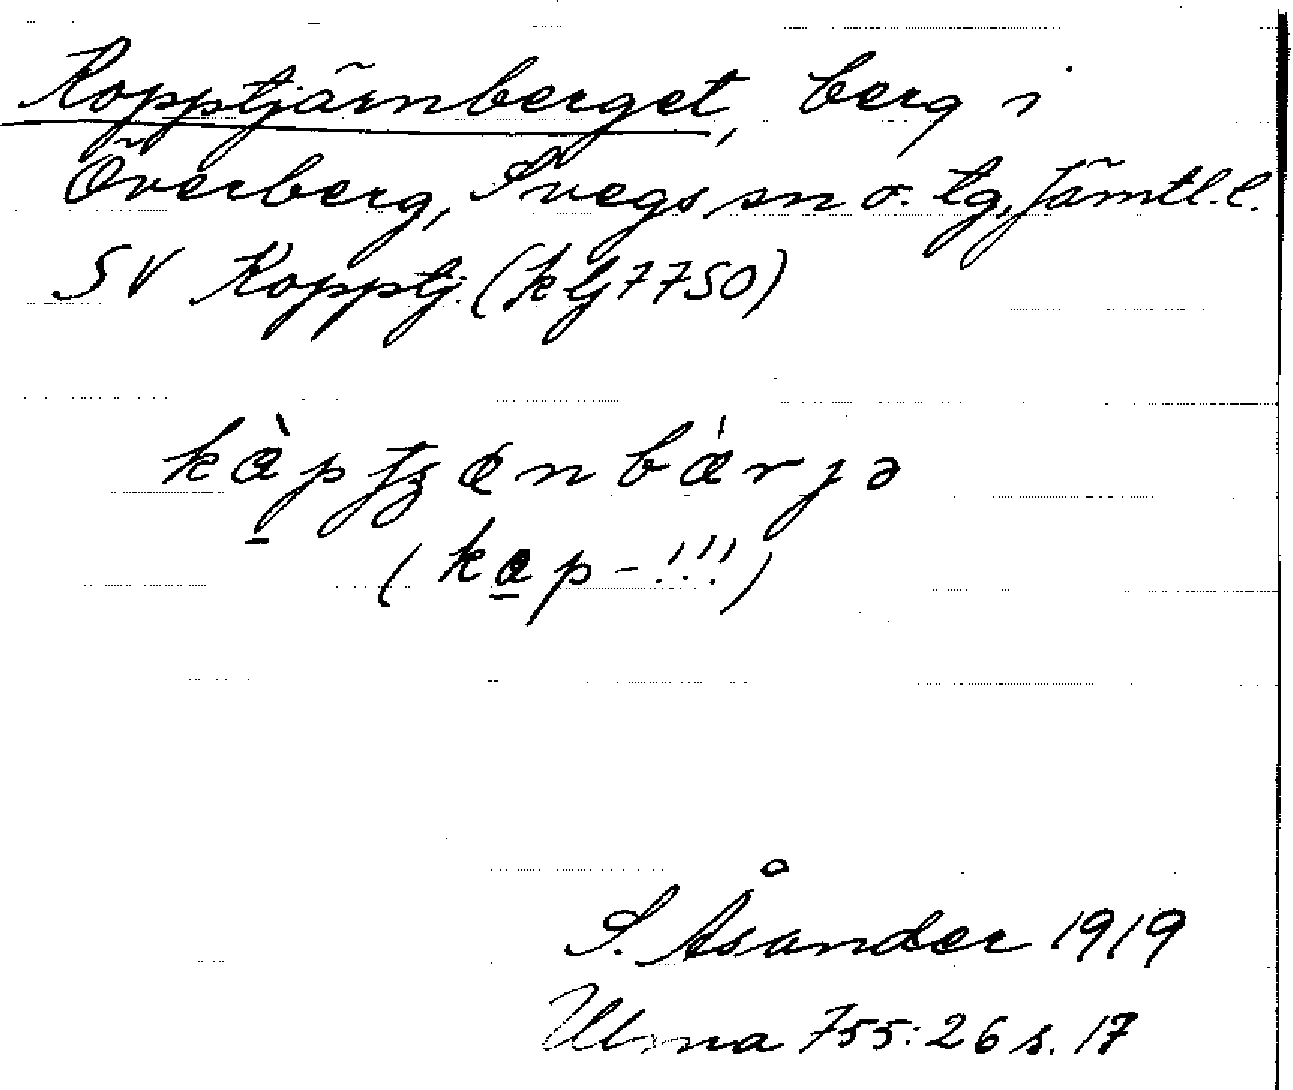 Kopptjärnberget, berg i
Överberg, Svegs sn o. tg, Jämtl. l.
SV Kopptj. (klj 7750)
(kap-!!!)
S. Åsander 1919
Ulma 755:26 s. 17